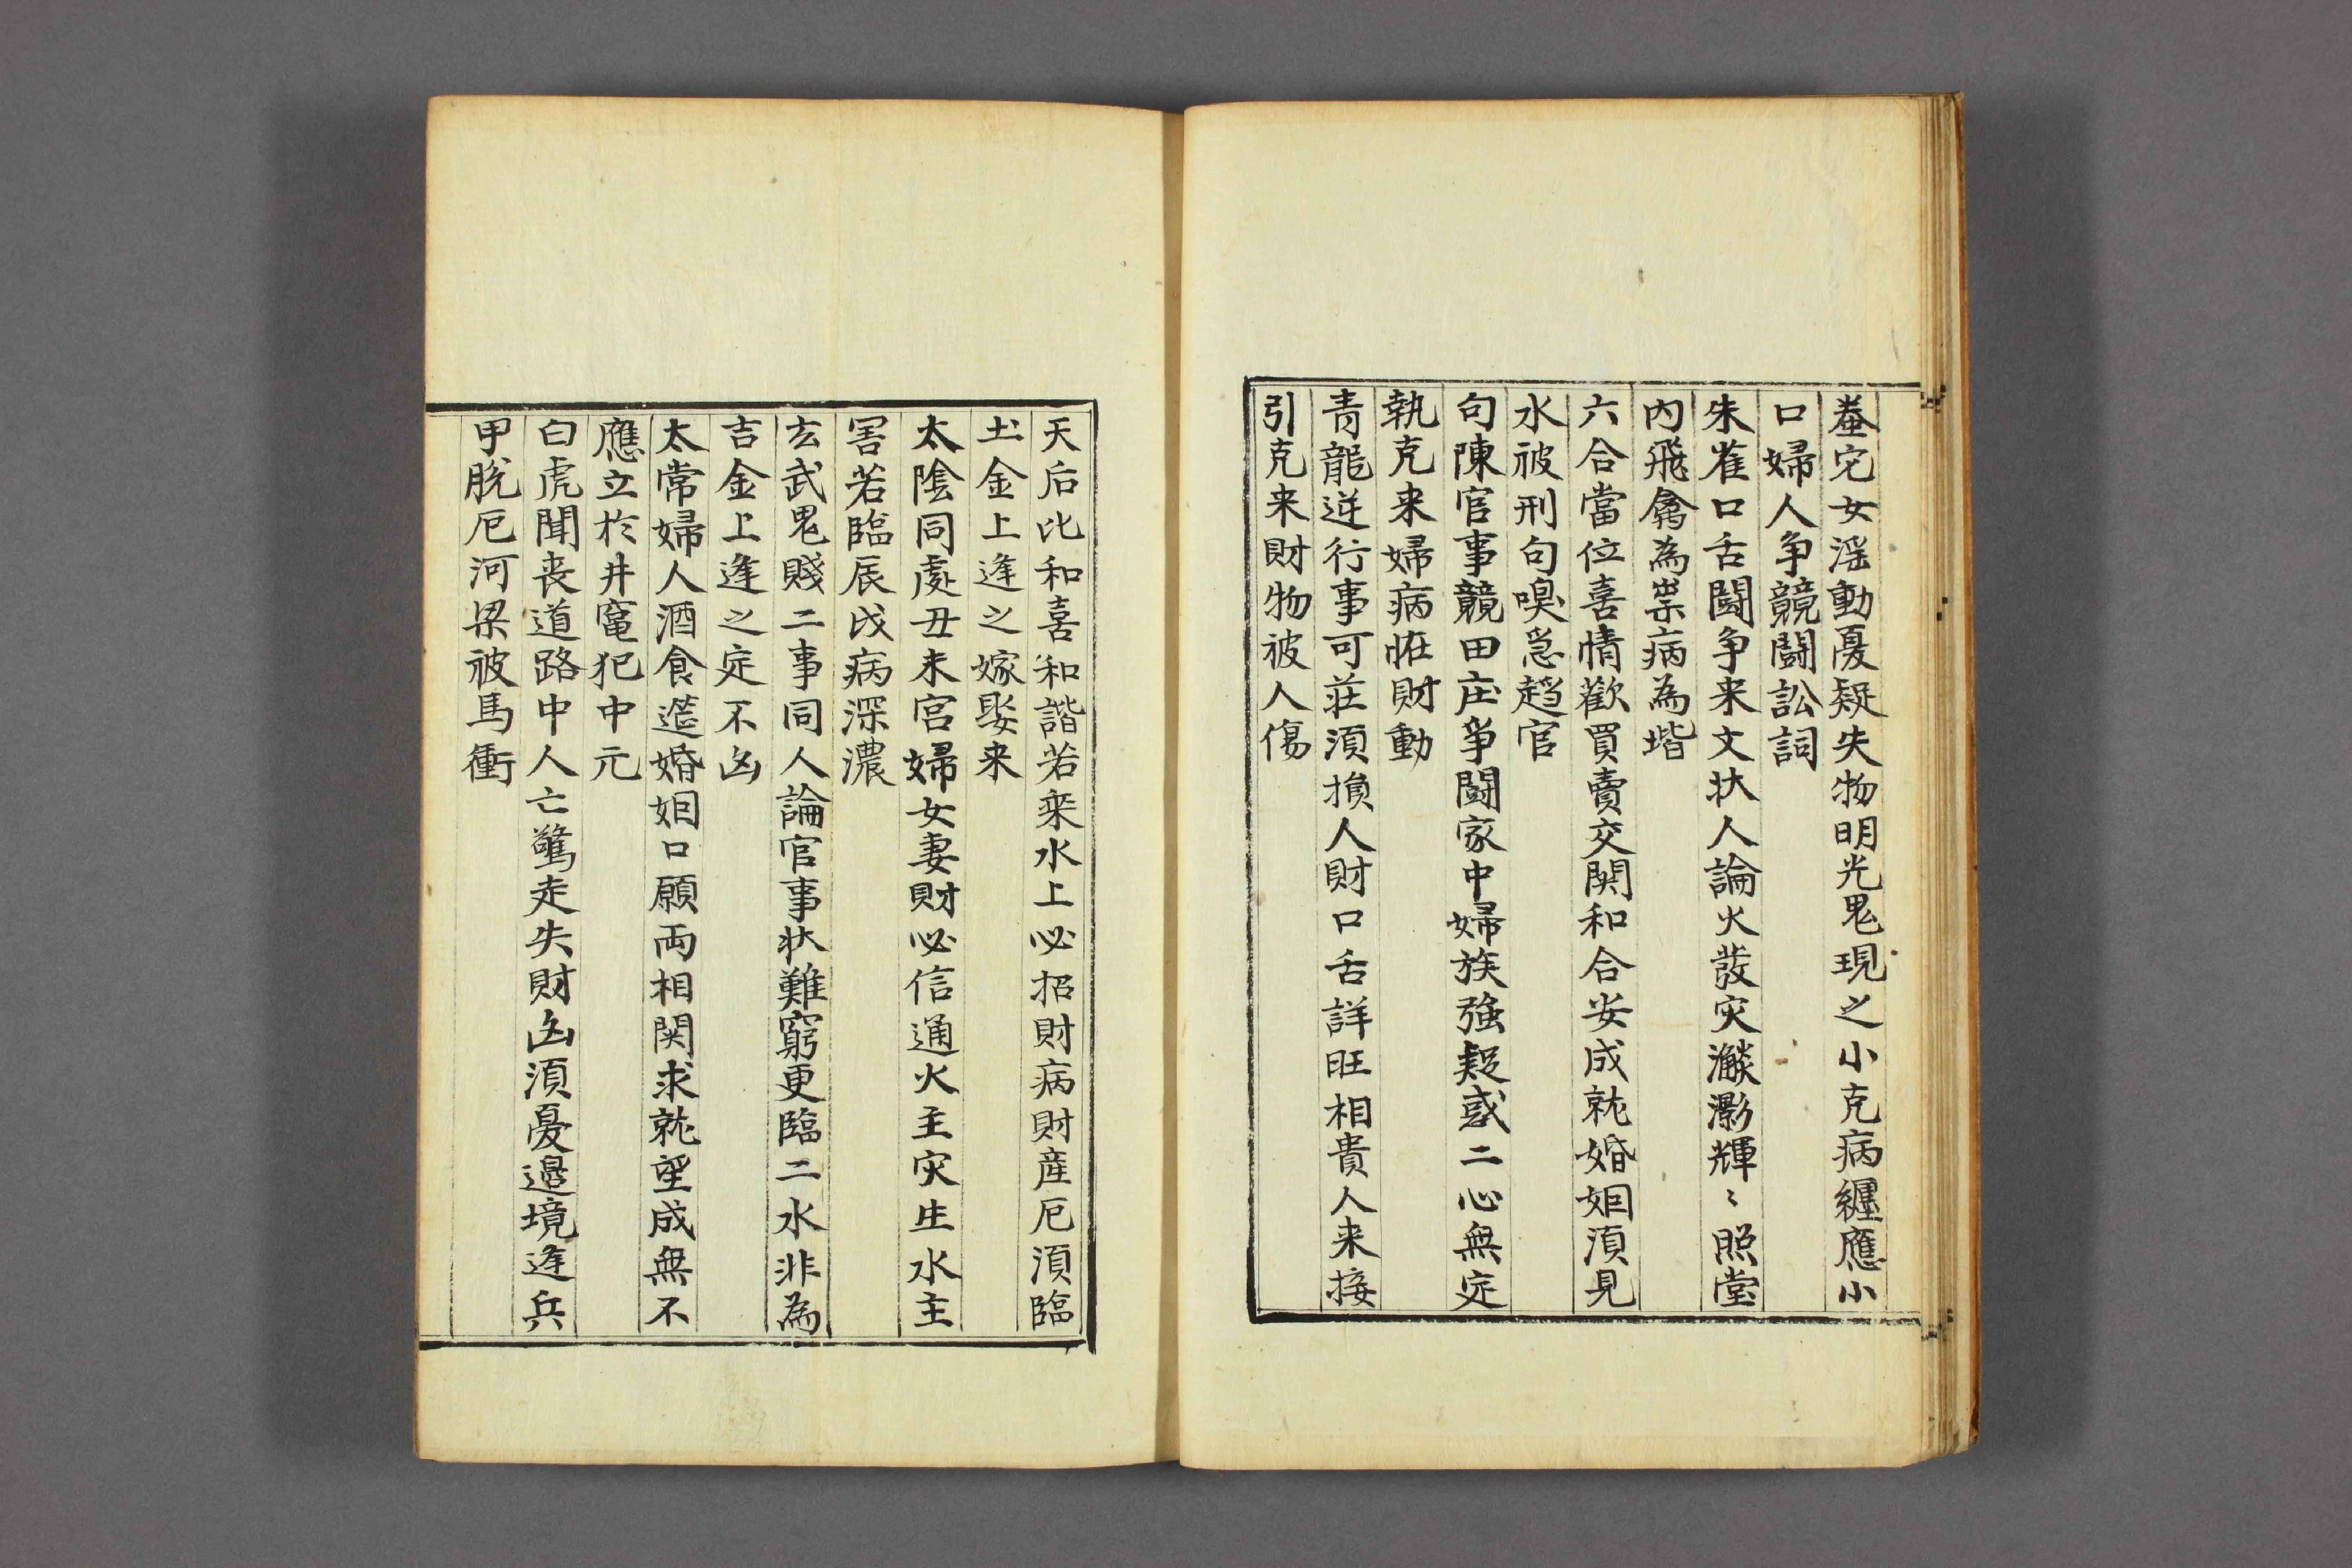 蚕宅女淫動憂疑失物明光鬼現之小克病纒應小
口婦人争競鬪訟詞
朱雀口舌鬪争来文状人論火發灾瀲灔輝〻照堂
内飛禽為祟病為堦
六合當位喜情歡買賣交関和合安成就婚姻湏見
水被刑句嗅忌趋官
句陳官事競田庄争鬪家中婦族強疑惑二心無定
執克来婦病恠財動
青龍逆行事可荘湏損人財口舌詳旺相貴人来接
引克来財物被人傷
天后比和喜和諧若乗水上必招財病財産厄湏臨
土金上逢之嫁娶来
太陰同處丑未宫婦女妻財必信通火主灾生水主
害若臨辰戌病深濃
玄武鬼賤二事同人論官事状難窮更臨二水非為
吉金上逢之定不凶
太常婦人酒食筵婚姻口願両相関求就望成無不
應立於井竃犯中元
白虎聞丧道路中人亡驚走失財凶湏憂邉境逢兵
甲脱厄河梁被馬衝